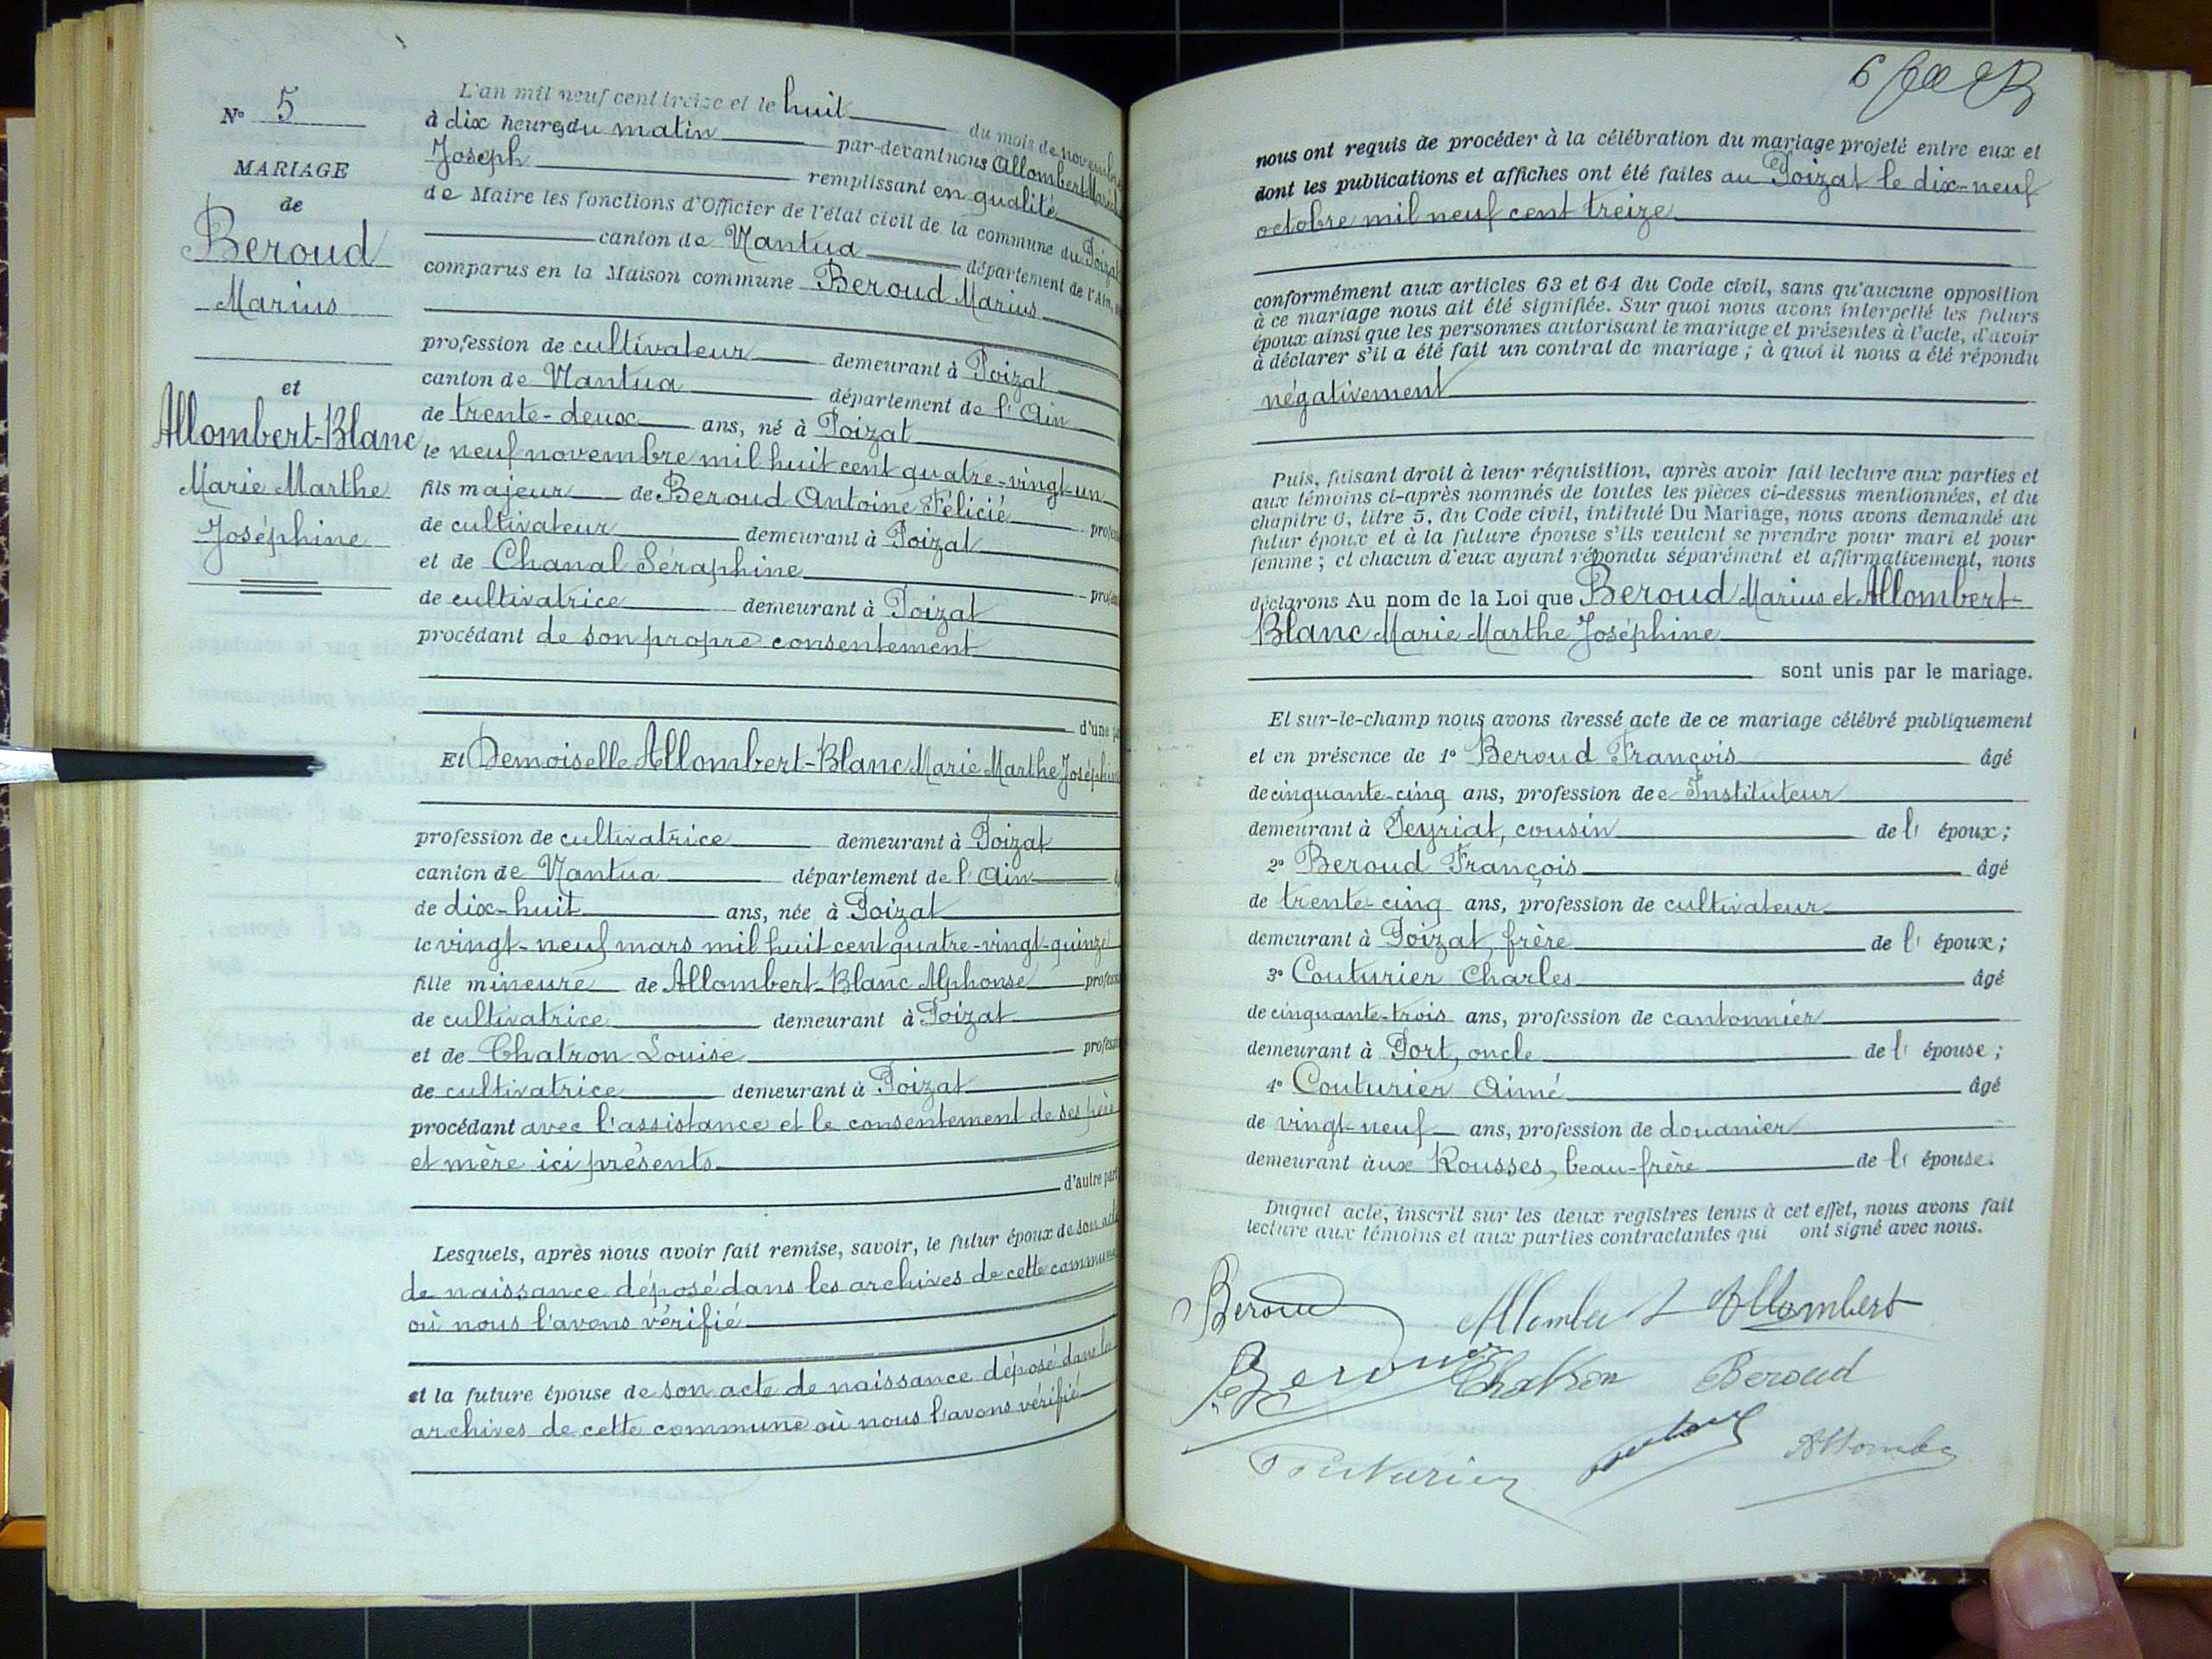 N° 5
MARIAGE
de
Beroud
Marius
et
Allombert-Blanc
Marie Marthe
Joséphine
L'an mil neuf cent treize et le huit du mois de novembre
à dix heures du matin par-devant nous Allombert
Joseph remplissant en qualité
de Maire les fonctions d'Officier de l'état civil de la commune du Poizat
canton de Nantua département de l'Ain
comparus en la Maison commune Beroud Marius
profession de cultivateur demeurant à Poizat
canton de Nantua département de l'Ain
de trente-deux ans, né à Poizat
le neuf novembre mil huit cent quatre-vingt-un
fils majeur de Beroud Antoine Félicié
de cultivateur demeurant à Poizat
et de Chanal Séraphine
de cultivatrice demeurant à Poizat
procédant de son propre consentement
d'une
Et Demoiselle Allombert-Blanc Marie Marthe Joséphine
profession de cultivatrice demeurant à Poizat
canton de Nantua département de l'Ain
de dix-huit ans, née à Poizat
le vingt-neuf mars mil huit cent quatre-vingt-quinze
fille mineure de Allombert-Blanc Alphonse
de cultivatrice demeurant à Poizat
et de Chatron Louise
de cultivatrice demeurant à Poizat
procédant avec l'assistance et le consentement de ses père
et mère ici présents
d'autre part
Lesquels, après nous avoir fait remise, savoir, le futur époux de son acte
de naissance déposé dans les archives de cette commune
où nous l'avons vérifié
et la future épouse de son acte de naissance déposé dans les
archives de cette commune où nous l'avons vérifié
6
nous ont requis de procéder à la célébration du mariage projeté entre eux et
dont les publications et affiches ont été faites au Poizat le dix-neuf
octobre mil neuf cent treize
conformément aux articles 63 et 64 du Code civil, sans qu'aucune opposition
à ce mariage nous ait été signifiée. Sur quoi nous avons interpellé les futurs
époux ainsi que les personnes autorisant le mariage et présentes à l'acte, d'avoir
à déclarer s'il a été fait un contrat de mariage ; à quoi il nous a été répondu
négativement
Puis, faisant droit à leur réquisition, après avoir fait lecture aux parties et
aux témoins ci-après nommés de toutes les pièces ci-dessus mentionnées, et du
chapitre 6, titre 5, du Code civil, intitulé Du Mariage, nous avons demandé au
futur époux et à la future épouse s'ils veulent se prendre pour mari et pour
femme ; et chacun d'eux ayant répondu séparément et affirmativement, nous
déclarons Au nom de la Loi que Beroud Marius et Allombert-
Blanc Marie Marthe Joséphine
sont unis par le mariage.
Et sur-le-champ nous avons dressé acte de ce mariage célébré publiquement
et en présence de 1° Beroud François âgé
de cinquante-cinq ans, profession de Instituteur
demeurant à Peyriat, cousin de l' époux ;
2° Beroud François âgé
de trente-cinq ans, profession de cultivateur
demeurant à Poizat, frère de l' époux ;
3° Couturier Charles âgé
de cinquante-trois ans, profession de cantonnier
demeurant à Port, oncle de l' épouse ;
4° Couturier Aimé âgé
de vingt-neuf ans, profession de douanier
demeurant aux Rousses, beau-frère de l' épouse.
Duquel acte, inscrit sur les deux registres tenus à cet effet, nous avons fait
lecture aux témoins et aux parties contractantes qui ont signé avec nous.
Beroud Allombert Allombert
Chatron Beroud
Couturier